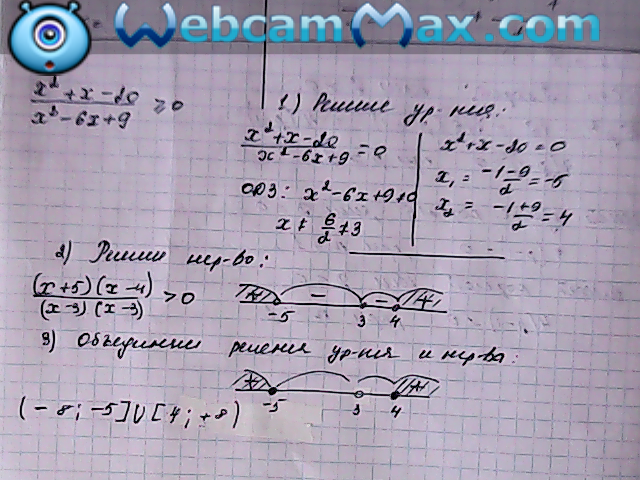 WebcamMax.com
x²+x-20 / x²-6x+9 ≥ 0
1) Решие ур-ния:
x²+x-20 / x²-6x+9 = 0
ОДЗ: x²-6x+9≠0
x ≠ 6/2 ≠ 3
x²+x-20=0
x₁ = -1-9 / 2 = -5
x₂ = -1+9 / 2 = 4
2) Решим нер-во:
(x+5)(x-4) / (x-3)(x-3) > 0
+ - - +
-5 3 4
3) Объединим решения ур-ния и нер-ва:
+ +
-5 3 4
(-8; -5]U[4; +8)